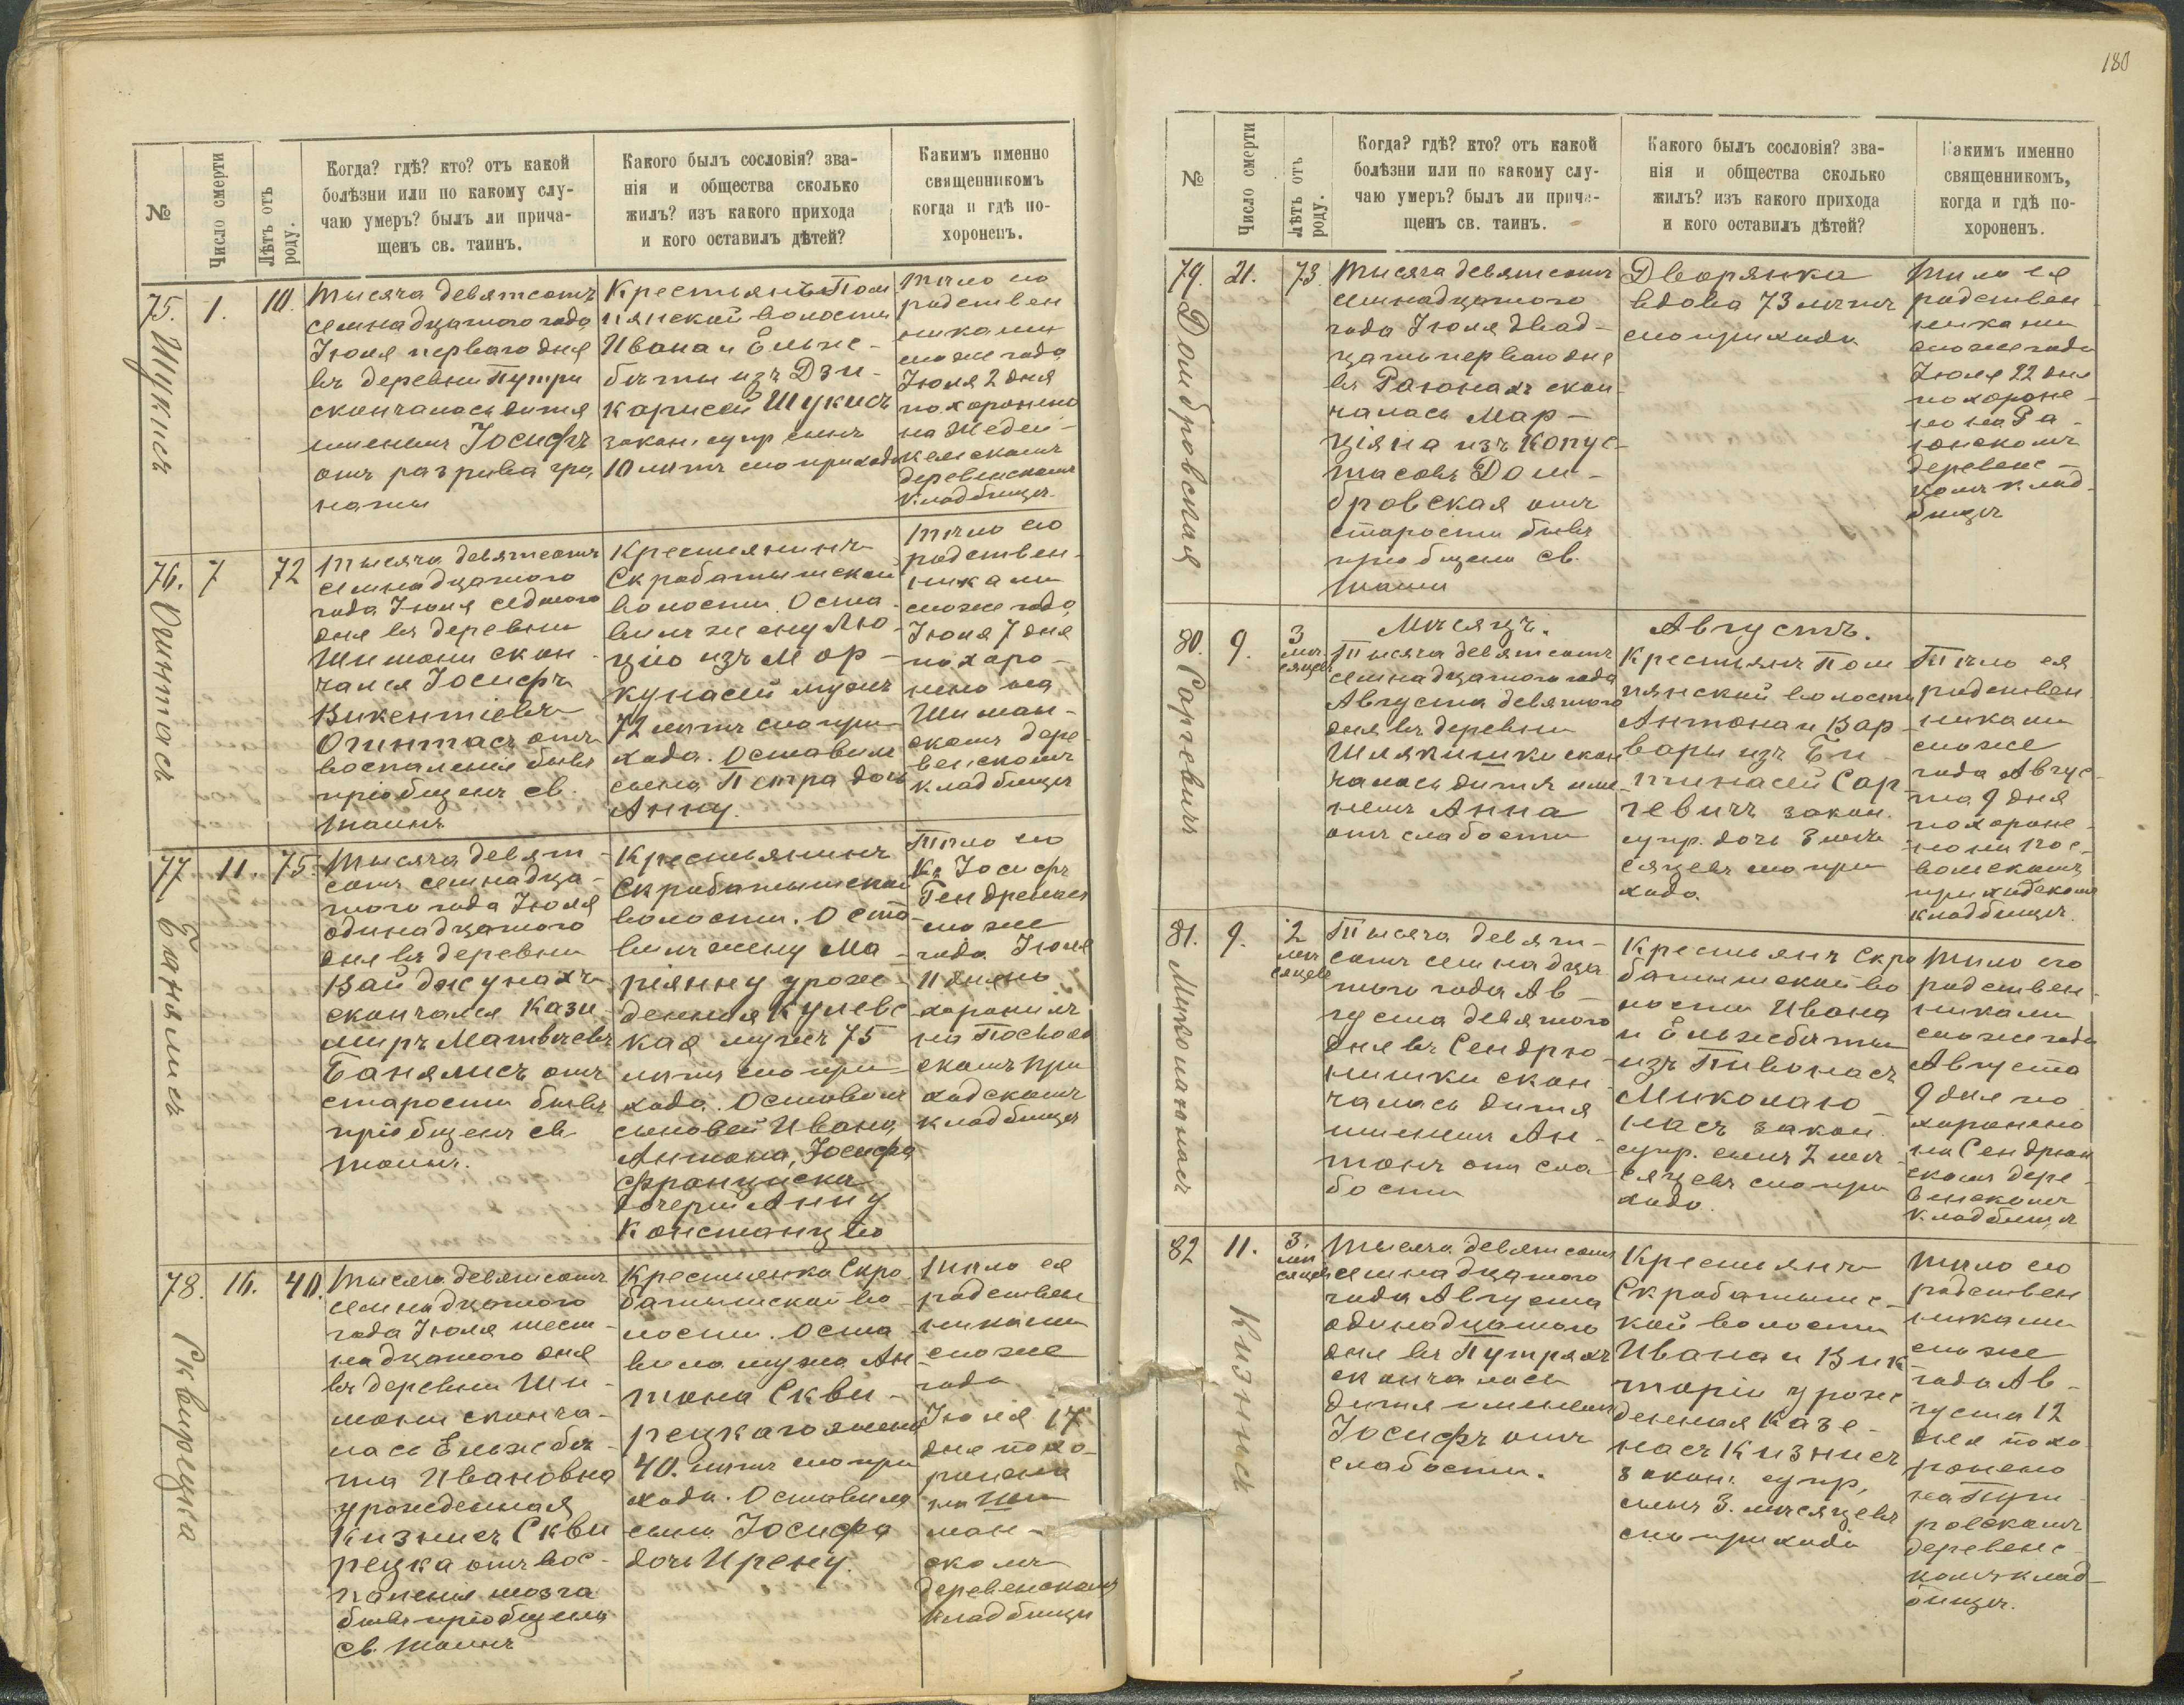 180
№
Число смерти
Лѣтъ отъ
роду.
Когда? гдѣ? кто? отъ какой
болѣзни или по какому слу-
чаю умеръ? былъ ли прича-
щенъ св. таинъ.
Какого былъ сословія? зва-
нія и общества сколько
жилъ? изъ какого прихода
и кого оставилъ дѣтей?
Какимъ именно
священникомъ
когда и гдѣ по-
хороненъ.
75.
Шукисъ
1.
10.
Тысяча девятьсотъ
семнадцатого года
Іюля перваго дня
въ деревни Путри
скончалось дитя
именемъ Іосифъ
отъ разрыва гра
наты
Крестьянъ Пом
пянской волости
Ивана и Ельже-
беты изъ Дзи-
карисей Шукисъ
закон. супр сынъ
10 летъ сто прихода
Тѣло его
родствен
никами
сто же года
Іюля 2 дня
похоронено
на Жедей-
кемскомъ
деревенскомъ
кладбищѣ.
76.
Огинтасъ
7
72
Тысяча девятьсотъ
семнадцатого
года Іюля седьмого
дня въ деревни
Шимони скон-
чался Іосифъ
Викентіевъ
Огинтасъ отъ
воспаленія бывъ
пріобщенъ св.
таинъ
Крестянинъ
Скробатышской
волости. Оста-
вилъ жену Лю-
цію изъ Мор-
кунасей мужъ
72 летъ сто при-
хода. Оставилъ
сына Петра дочь
Анну.
Тѣло его
родствен-
никами
сто же года
Іюля 7 дня
похоро-
нено на
Шиман-
скомъ дере-
венскомъ
кладбищѣ
77
Банялисъ
11.
75.
Тысяча девять-
сотъ семнадца-
того года Іюля
одинадцатого
дня въ деревни
Вайджунахъ
скончался Кази-
миръ Матвѣевъ
Банялисъ отъ
старости бывъ
пріобщенъ св.
таинъ.
Крестьянинъ
Скробатышской
волости. Оста-
вилъ жену Ма-
ріянну урож-
денная Кулевс
кая мужъ 75
летъ сто при-
хода. Оставилъ
сыновей Ивана,
Антона, Іосифа
Франциска
дочерей Анну
Констанцію
Тѣло его
Кс Іосифъ
Гендренасъ
сто же
года Іюля
11 дня по-
хоронилъ
на Посвол
скомъ при
ходскомъ
кладбищѣ
78.
Сквирецка
16.
40.
Тысяча девятьсотъ
семнадцатого
года Іюля шест-
надцатого дня
въ деревни Ши-
мони сконча-
лась Ельжбе-
та Ивановна
урожденная
Кизнисъ Скви
рецка отъ вос-
паленія мозга
бывъ пріобщена
св. таинъ
Крестьянка Скро
батышской во-
лости. Оста
вила мужа Ан
тона Скви-
рецкаго жена
40. летъ сто при
хода. Оставила
сына Іосифа
дочь Ирену.
Тѣло ея
родствен
никами
сто же
года
Іюля 17
дня похо-
ронена
на Ши
ман-
скомъ
деревенскомъ
кладбищѣ
№
Число смерти
Лѣтъ отъ
роду.
Когда? гдѣ? кто? отъ какой
болѣзни или по какому слу-
чаю умеръ? былъ ли прича-
щенъ св. таинъ.
Какого былъ сословія? зва-
нія и общества сколько
жилъ? изъ какого прихода
и кого оставилъ дѣтей?
Какимъ именно
священникомъ,
когда и гдѣ по-
хороненъ.
79.
Домбровская
21.
73.
Тысяча девятьсотъ
семнадцатого
года Іюля двад-
цать перваго дня
въ Раюнахъ скон
чалась Мар-
ціяна изъ Копус-
тасовъ Дом-
бровская отъ
старости бывъ
пріобщена св.
таинъ
Дворянка
вдова 73 летъ
сто прихода
Тѣло ея
родствен-
никами
сто же года
Іюля 22 дня
похороне-
но на Ра-
юнскомъ
деревенс-
комъ клад-
бищѣ
Мѣсяцъ. Августъ.
80.
Саргевичъ
9.
3
мѣ-
сяцевъ
Тысяча девятьсотъ
семнадцатого года
Августа девятого
дня въ деревни
Шляпишки скон
чалась дитя име-
немъ Анна
отъ слабости
Крестьянъ Пом
пянской волости
Антона и Вар-
вары изъ Би-
тинасей Сар-
гевичъ закон.
супр. дочь 3 мѣ-
сяцевъ сто при
хода.
Тѣло ея
родствен
никами
сто же
года Авгус-
та 9 дня
похороне-
но на Пос-
волскомъ
приходскомъ
кладбищѣ.
81.
Миколаюнасъ
9.
2
мѣ
сяцевъ
Тысяча девять-
сотъ семнадца
того года Ав-
густа девятого
дня въ Сендрю-
нишки скон-
чалась дитя
именемъ Ан-
тонъ отъ сла
бости
Крестьянъ Скро
батышской во
лости Ивана
и Ельжбеты
изъ Пивонасъ
Миколаю-
насъ закон.
супр. сынъ 2 мѣ-
сяцевъ сто при
хода.
Тѣло его
родствен-
никами
сто же года
Августа
9 дня по
хоронено
на Сендрюн
скомъ дере-
венскомъ
кладбищѣ
82
Кизнисъ
11.
3.
мѣ
сяцевъ
Тысяча девятьсотъ
семнадцатого
года Августа
одинадцатого
дня въ Путряхъ
скончалось
дитя именемъ
Іосифъ отъ
слабости.
Крестьянъ
Скробатышс-
кой волости
Ивана и Вик
торіи урож
денная Казе-
насъ Кизнисъ
закон. супр,
сынъ 3. мѣсяцевъ
сто прихода
Тѣло его
родствен
никами
сто же
года Ав-
густа 12
дня похо
ронено
на Пут
ровскомъ
деревенс-
комъ клад-
бищѣ.